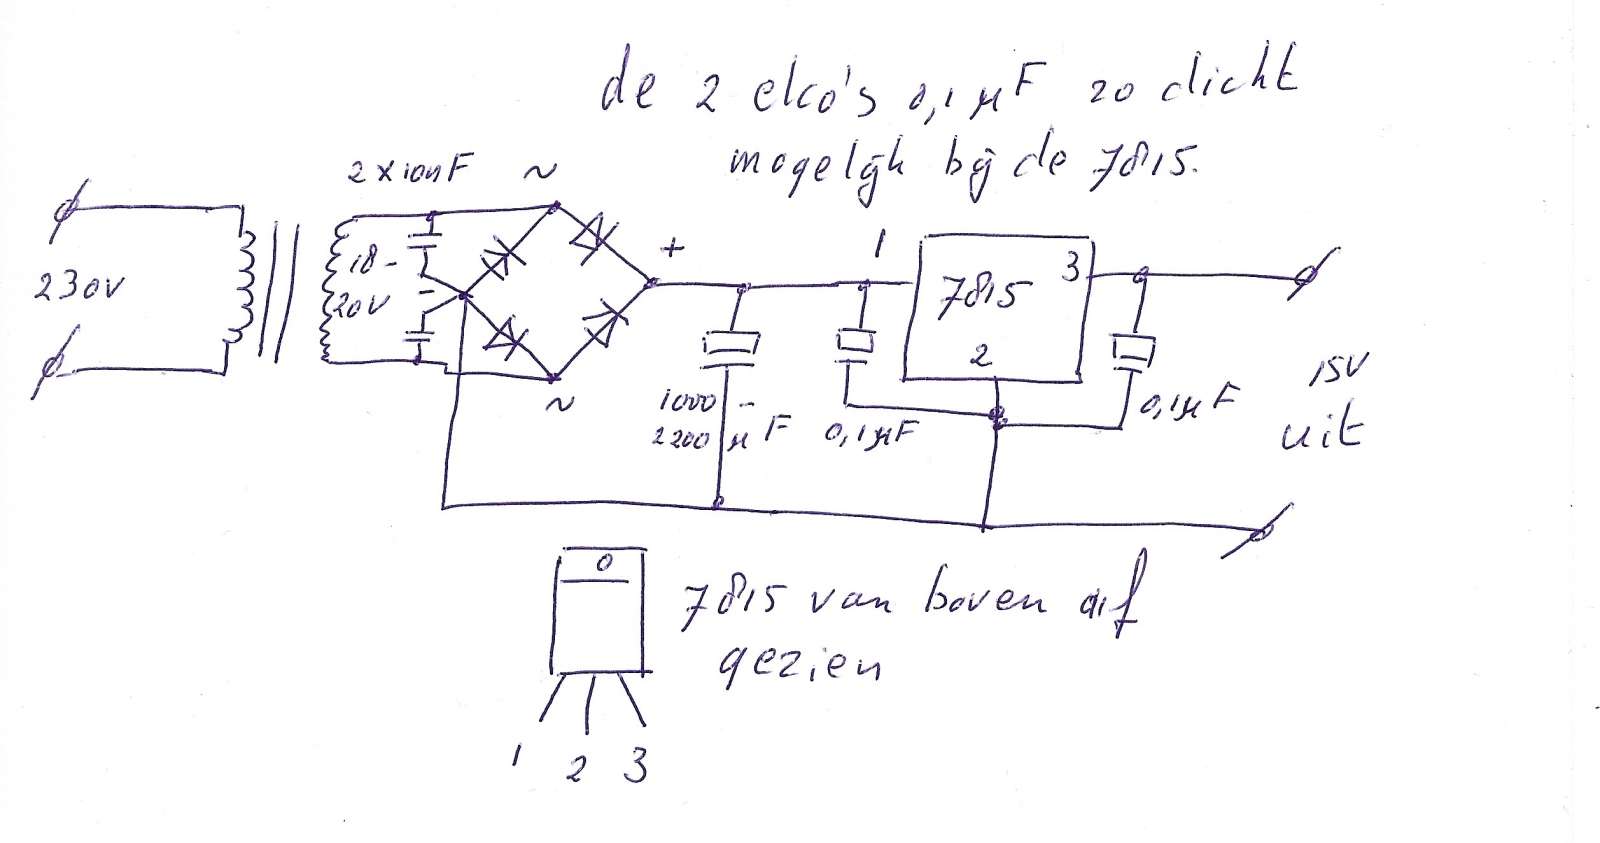 de 2 elco's 0,1 µF zo dicht
mogelijk bij de 7815.
2 x 10nF
~
230V
18-
20V
-
+
~
1
7815
3
2
1000 -
2200 µF
0,1µF
0,1µF
15V
uit
0
7815 van boven af
gezien
1 2 3